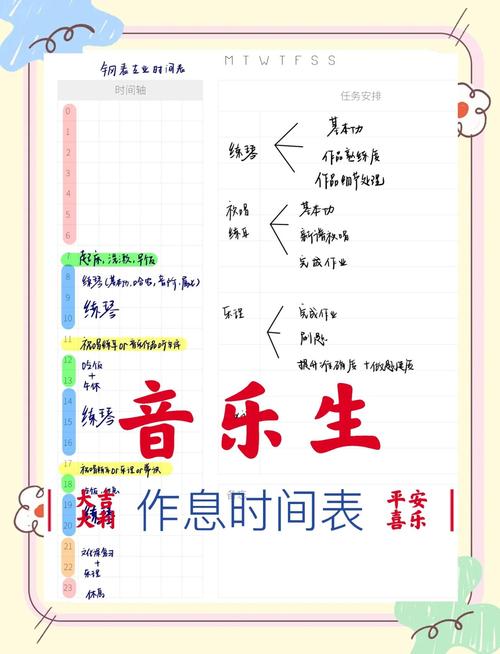 钢表专业时间表
M T W T F S S
时间轴
任务安排
0
1
2
3
4
5
6
7 起床,洗漱,早饭
8 练琴(基本功,哈农,音阶,
9
10 练琴
11 视唱练耳or音乐作品听
12 吃饭
+
13 午休
14
15 练琴
16
17 视唱练耳or乐理or常识
18 吃饭,休息
19
20 练琴
21 文化课复习
+
22 乐理
23 休息
练琴
基本功
作品熟练度
作品细节处理
视唱
练耳
基本功
新谱视唱
完成作业
乐理
完成作业
刷题
提升准确度+做题速度
音乐生
大吉
大利
作息时间表
平安
喜乐